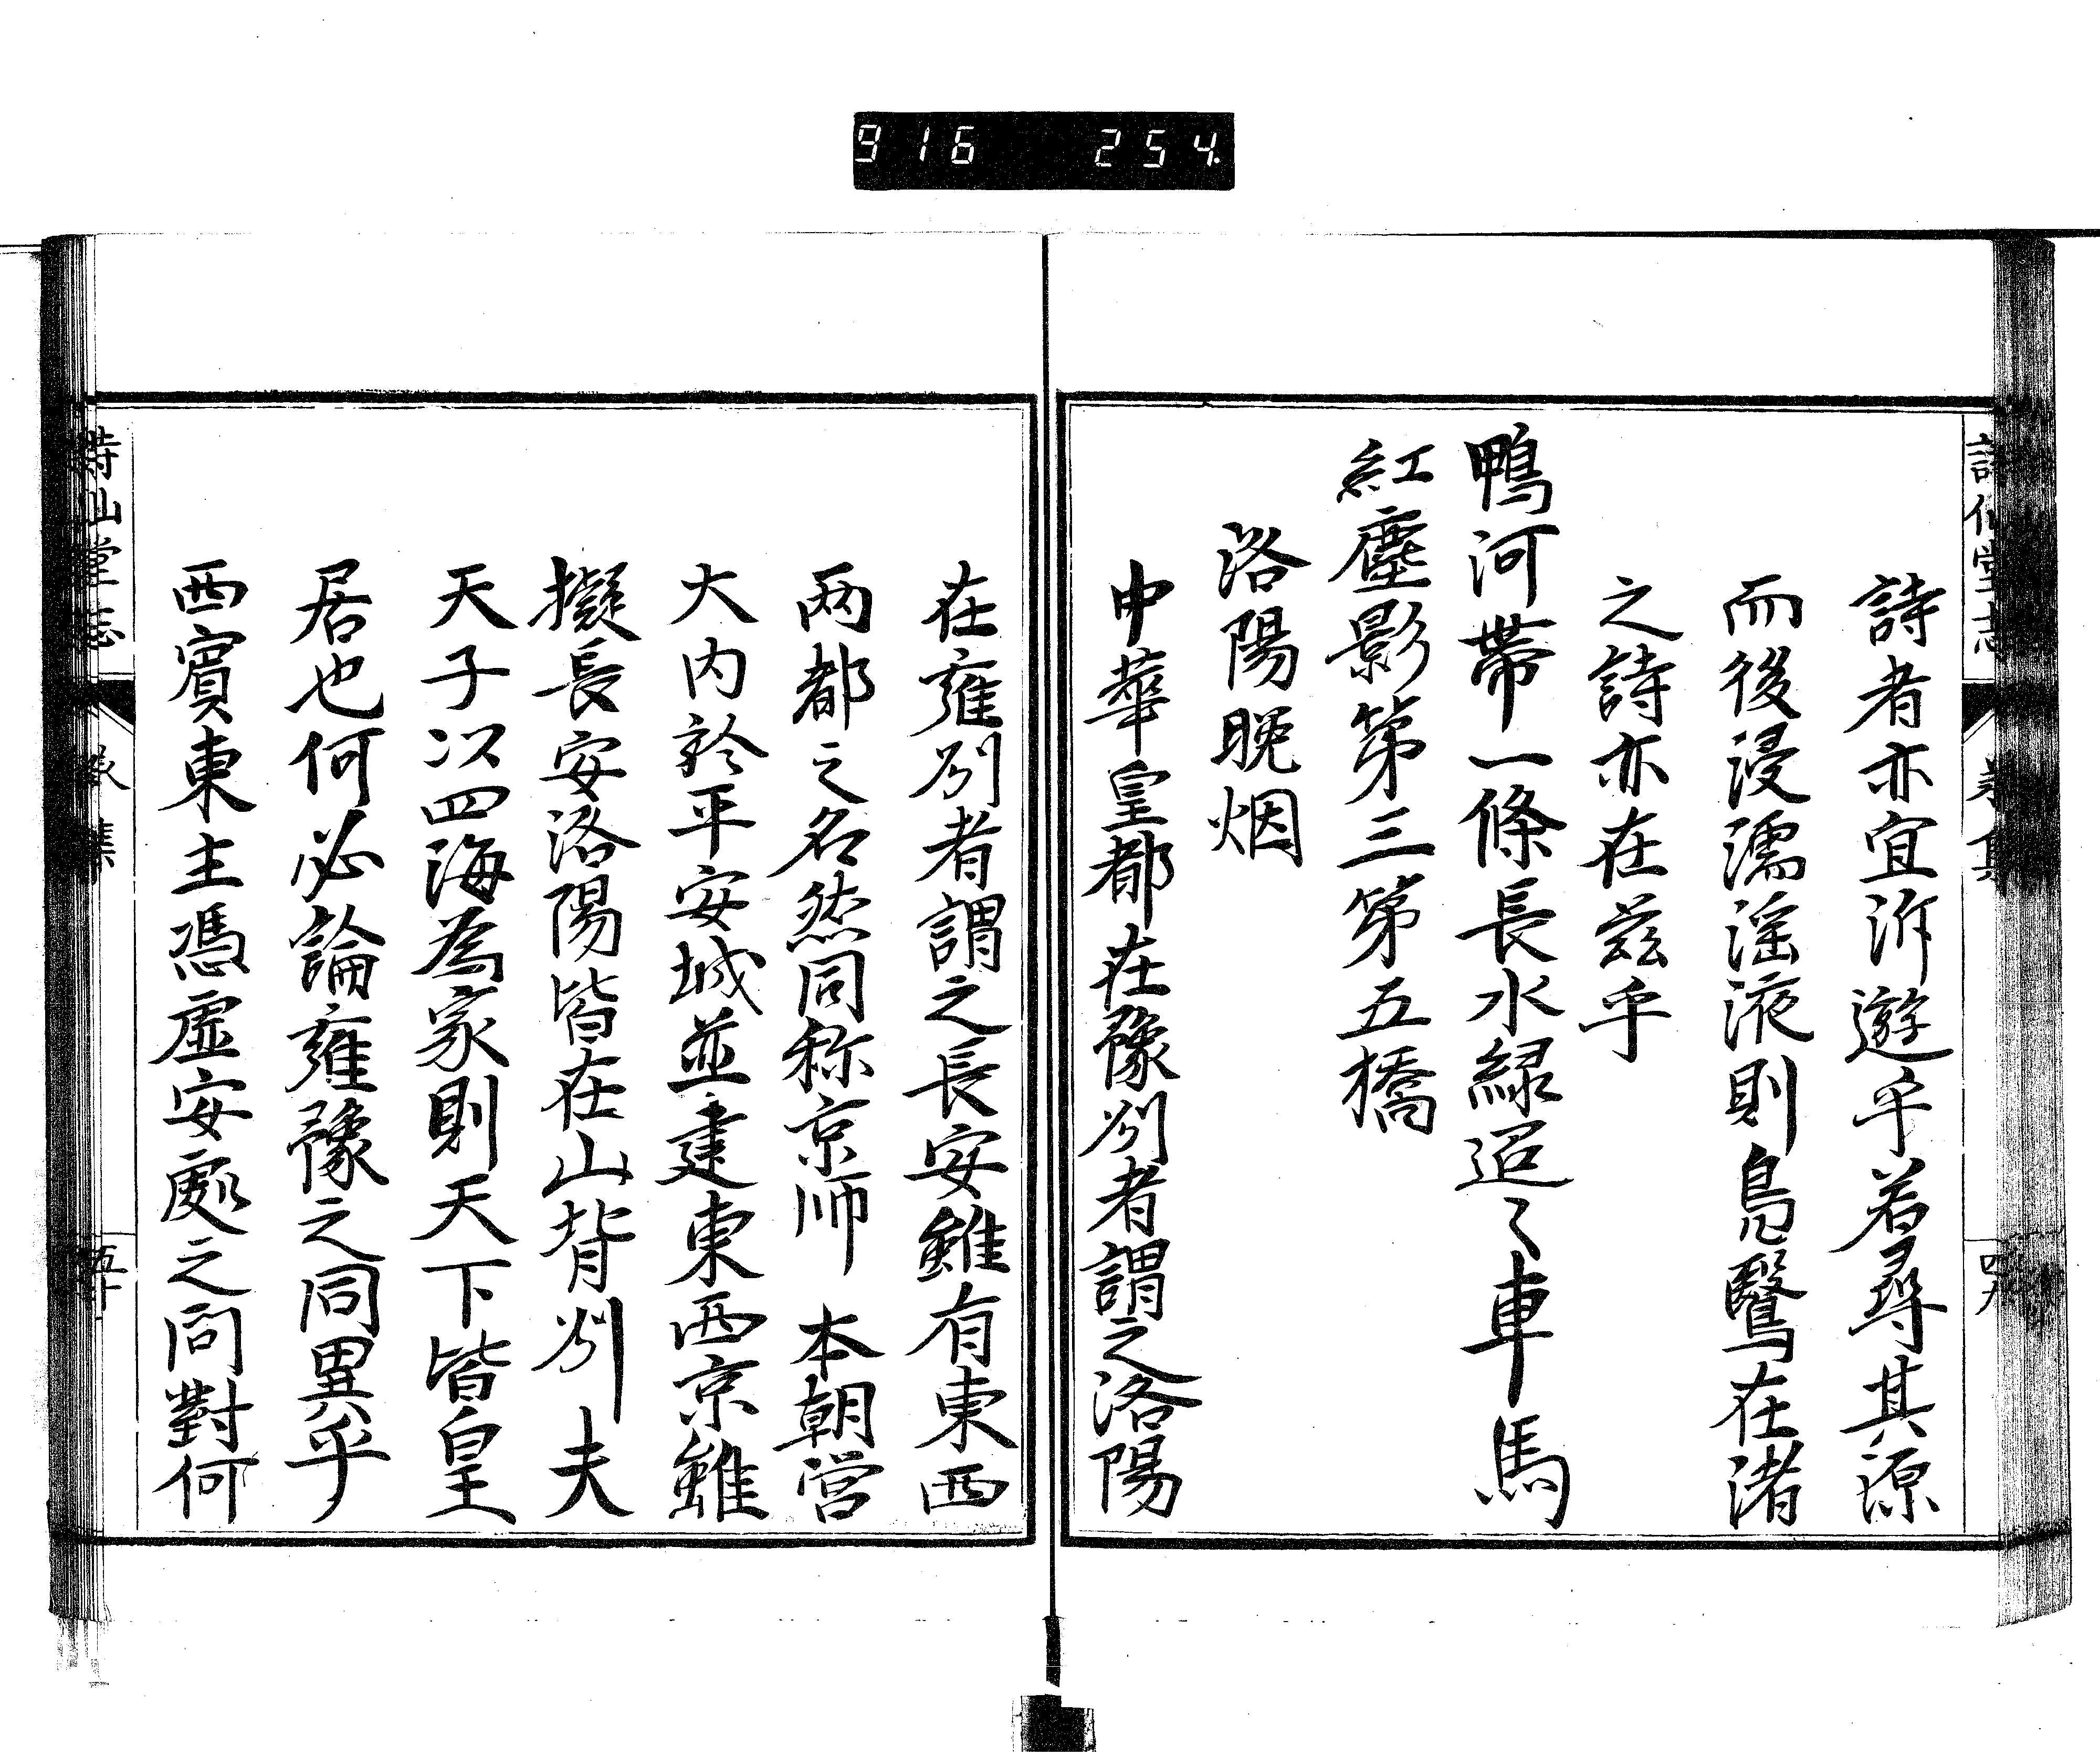 916 254
詩者亦宜泝遊乎若尋其源
而後浸濡滛液則鳧鷖在渚
之詩亦在茲乎
鴨河帶一條長水緑迢〻車馬
紅塵影第三第五橋
洛陽晩烟
中華皇都在豫刕者謂之洛陽
在雍刕者謂之長安雖有東西
两都之名然同称京师　本朝営
大内於平安城並建東西京雖
擬長安洛陽皆在山背刕夫
天子以四海為家則天下皆皇
居也何必論雍豫之同異乎
西賓東主憑虚安處之問對何
詩仙堂志
五十
四九